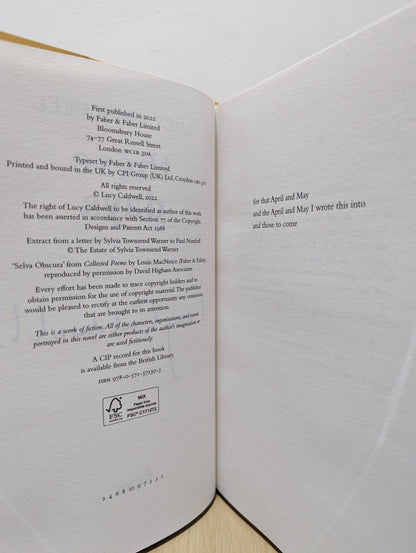 First published in 2022
by Faber & Faber Limited
Bloomsbury House
74–77 Great Russell Street
London WC1B 3DA
Typeset by Faber & Faber Limited
Printed and bound in the UK by CPI Group (UK) Ltd, Croydon CR0 4YY
All rights reserved
© Lucy Caldwell, 2022
The right of Lucy Caldwell to be identified as author of this work
has been asserted in accordance with Section 77 of the Copyright,
Designs and Patents Act 1988
Extract from a letter by Sylvia Townsend Warner to Paul Nordoff
© The Estate of Sylvia Townsend Warner
‘Selva Obscura’ from Collected Poems by Louis MacNeice (Faber & Faber),
reproduced by permission by David Higham Associates.
Every effort has been made to trace copyright holders and to
obtain permission for the use of copyright material. The publisher
would be pleased to rectify at the earliest opportunity any omissions
that are brought to its attention.
This is a work of fiction. All of the characters, organisations, and events
portrayed in this novel are either products of the author’s imagination or
are used fictitiously.
A CIP record for this book
is available from the British Library
ISBN 978–0–571–37130–3
FSC
MIX
Paper from
responsible sources
FSC® C171272
2 4 6 8 10 9 7 5 3 1
for that April and May
and the April and May I wrote this into
and those to come